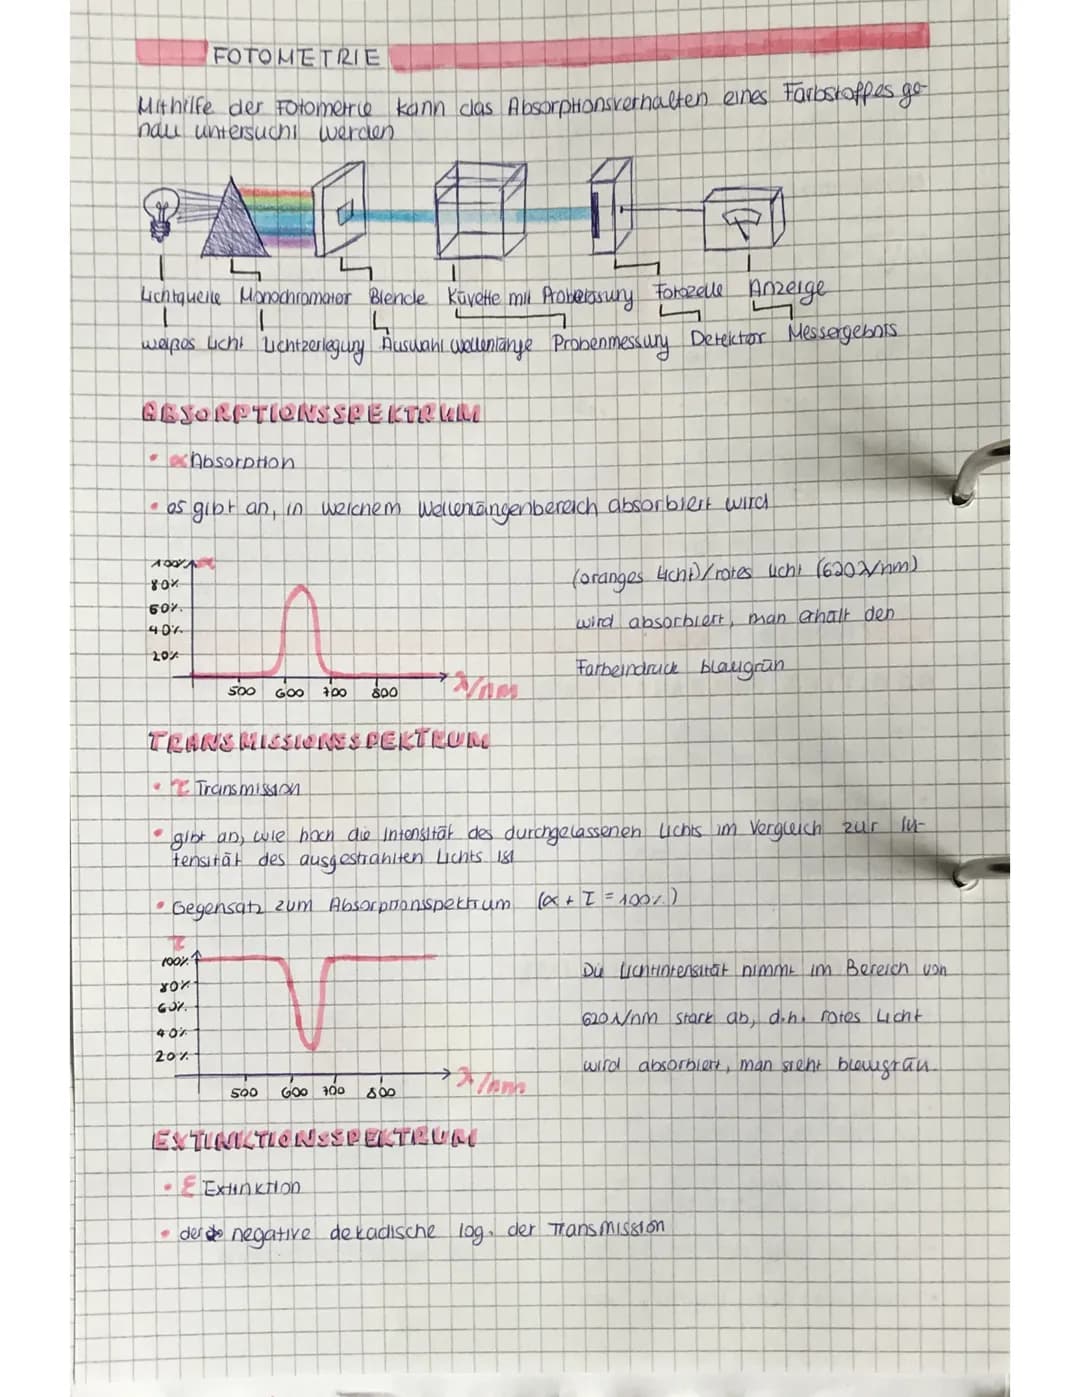 FOTOMETRIE
Mithilfe der Fotometrie kann das Absorptionsverhalten eines Farbstoffes ge-
nau untersucht werden
Lichtquelle Monochromator Blende Küvette mit Probelösung Fotozelle Anzeige
weißes Licht Lichtzerlegung Auswahl Wellenlänge Probenmessung Detektor Messergebnis
ABSORPTIONSSPEKTRUM
• α Absorption
• es gibt an, in welchem Wellenlängenbereich absorbiert wird
100% α
80%
60%
40%
20%
500 600 700 800 λ/nm
(oranges Licht)/rotes Licht (620 λ/nm)
wird absorbiert, man erhält den
Farbeindruck blaugrün
TRANSMISSIONSSPEKTRUM
• τ Transmission
• gibt an, wie hoch die Intensität des durchgelassenen Lichts im Vergleich zur In-
tensität des ausgestrahlten Lichts ist
• Gegensatz zum Absorptionsspektrum (α + τ = 100%)
τ
100%
80%
60%
40%
20%
500 600 700 800 λ/nm
Die Lichtintensität nimmt im Bereich von
620 λ/nm stark ab, d.h. rotes Licht
wird absorbiert, man sieht blaugrün.
EXTINKTIONSSPEKTRUM
• E Extinktion
• der negative dekadische log. der Transmission